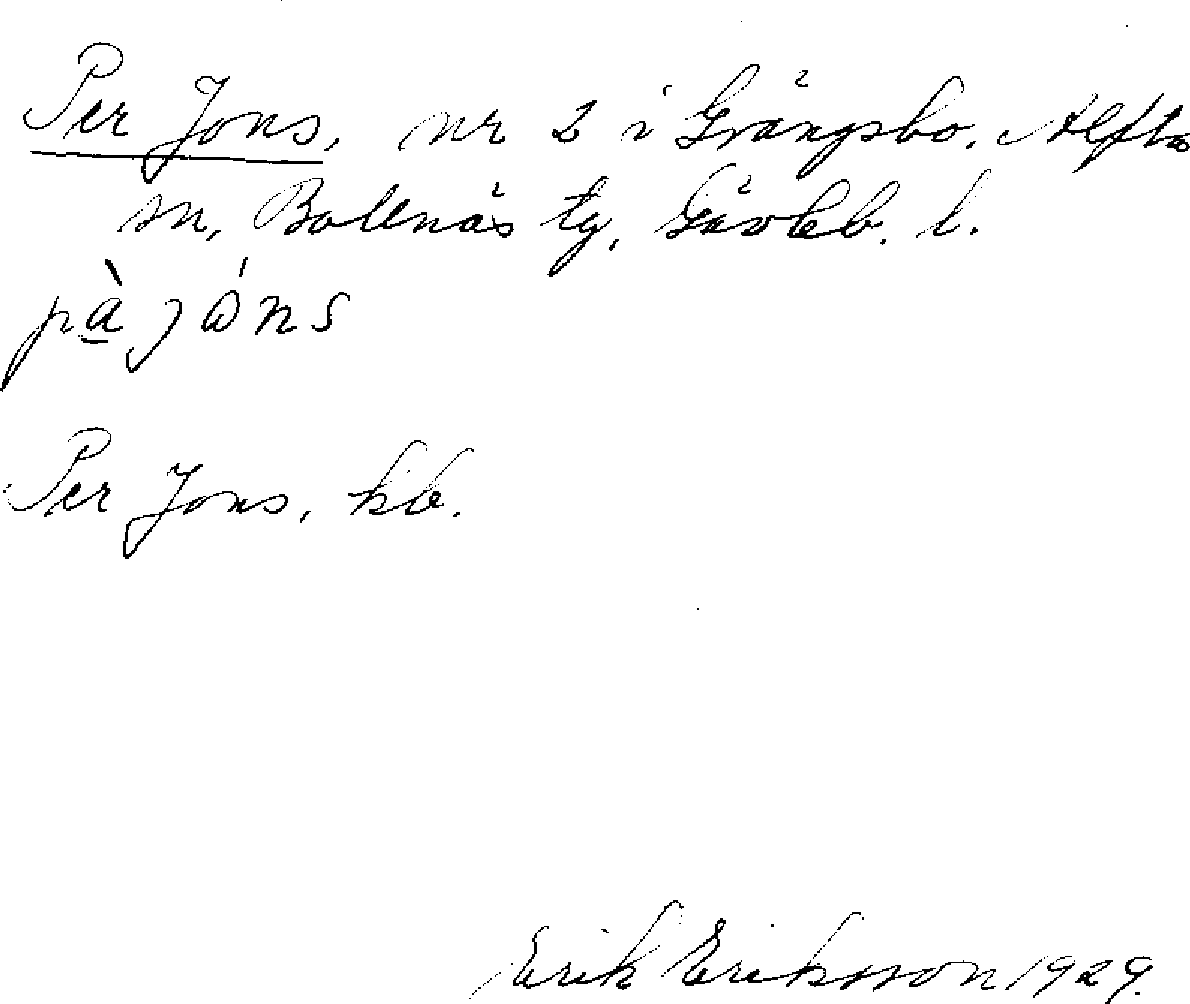 Per Jons, nr 2 i Grängsbo. Alfta
sn, Bollnäs tg, Gävleb. l.
pà jóns
Per Jons, kb.
Erik Eriksson 1929.